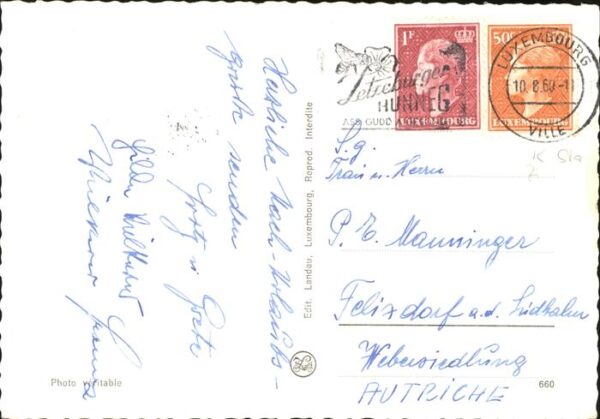 Herzliche Nach-Urlaubs-
grüsse senden
Fritz u. Grete
Edit. Landau, Luxembourg, Reprod. Interdite
Photo véritable
1F
LUXEMBOURG
50c
LUXEMBOURG
Letzeburger
HUNNEG
ASS GUDD
LUXEMBOURG
10.8.60-11
VILLE
S.g.
Frau u. Herrn
P. E. Manninger
Felixdorf a.d. Südbahn
Webersiedlung
AUTRICHE
660